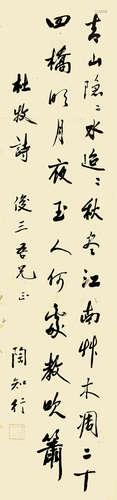 青山隐隐水迢迢秋尽江南艸木凋二十
四橋明月夜玉人何處教吹簫
杜牧詩
俊三吾兄正
陶知行